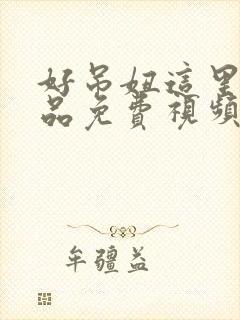 好吊妞這里
品免費視頻
牟疆益